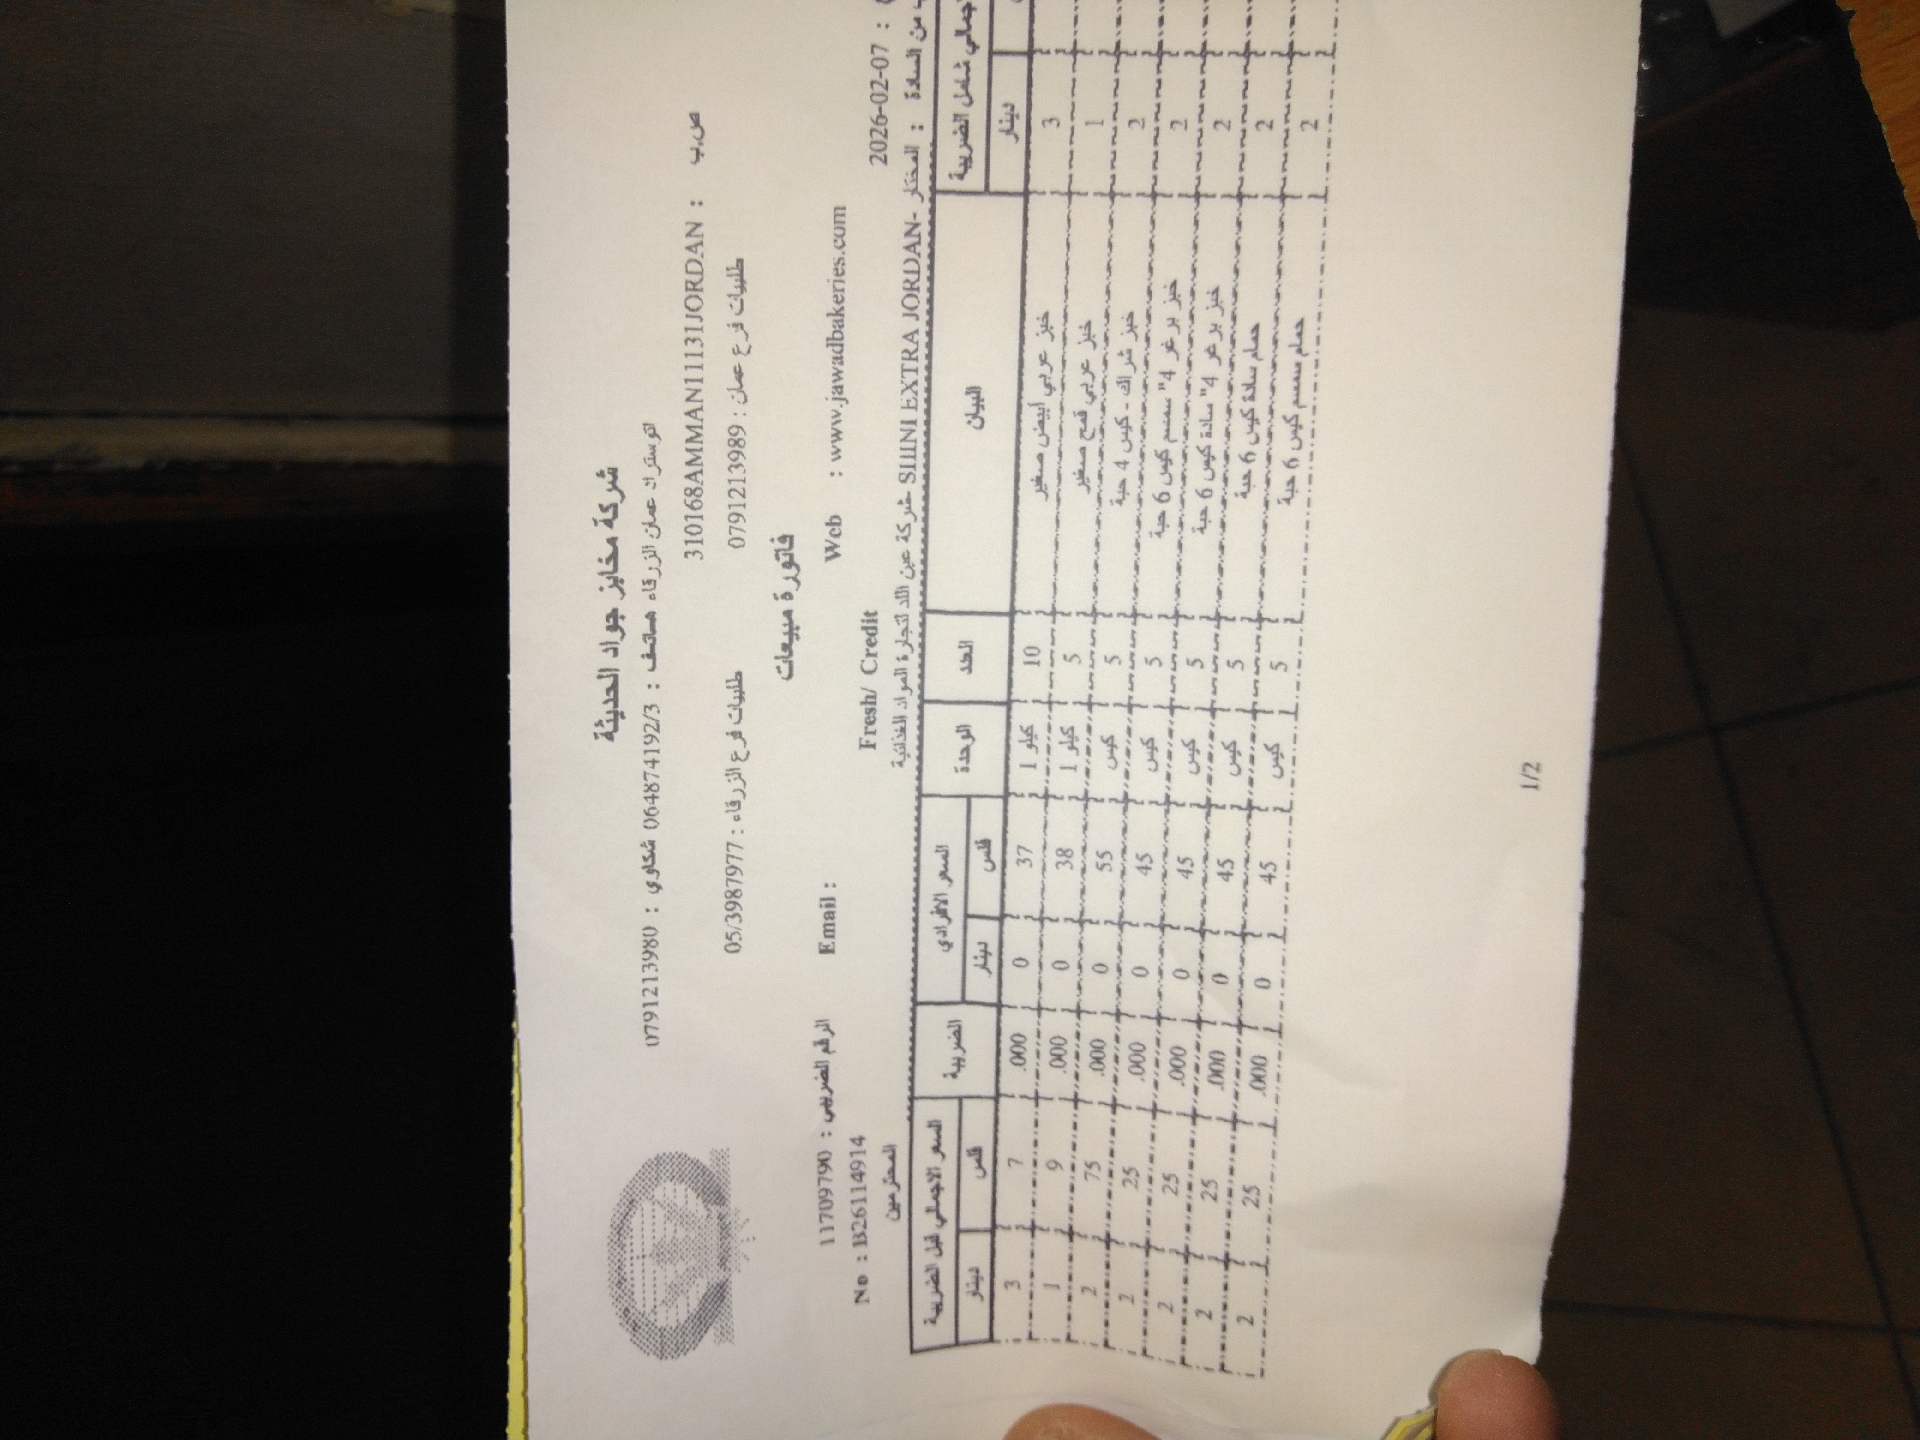 شركة مخابز جواد الحديثة
اتوستراد عمان الزرقاء هاتف : 064874192/3 شكاوي : 0791213980
ص.ب : 310168AMMAN11131JORDAN
طلبيات فرع عمان : 0791213989 طلبيات فرع الزرقاء : 05/3987977
فاتورة مبيعات
الرقم الضريبي : 11709790 Email : Web : www.jawadbakeries.com
No : B26114914 Fresh/ Credit 2026-02-07 :
من السادة : المختار -SIINI EXTRA JORDAN شركة عين اللد لتجارة المواد الغذائية المحترمين
شامل الضريبة البيان العدد الوحدة السعر الافرادي الضريبة السعر الاجمالي قبل الضريبة
دينار فلس دينار فلس دينار
3 خبز عربي ابيض صغير 10 كيلو 1 37 0 .000 7 3
1 خبز عربي قمح صغير 5 كيلو 1 38 0 .000 9 1
2 خبز شراك - كيس 4 حبة 5 كيس 55 0 .000 75 2
2 خبز برغر 4" سمسم كيس 6 حبة 5 كيس 45 0 .000 25 2
2 خبز برغر 4" سادة كيس 6 حبة 5 كيس 45 0 .000 25 2
2 حمام سادة كيس 6 حبة 5 كيس 45 0 .000 25 2
2 حمام سمسم كيس 6 حبة 5 كيس 45 0 .000 25 2
1/2